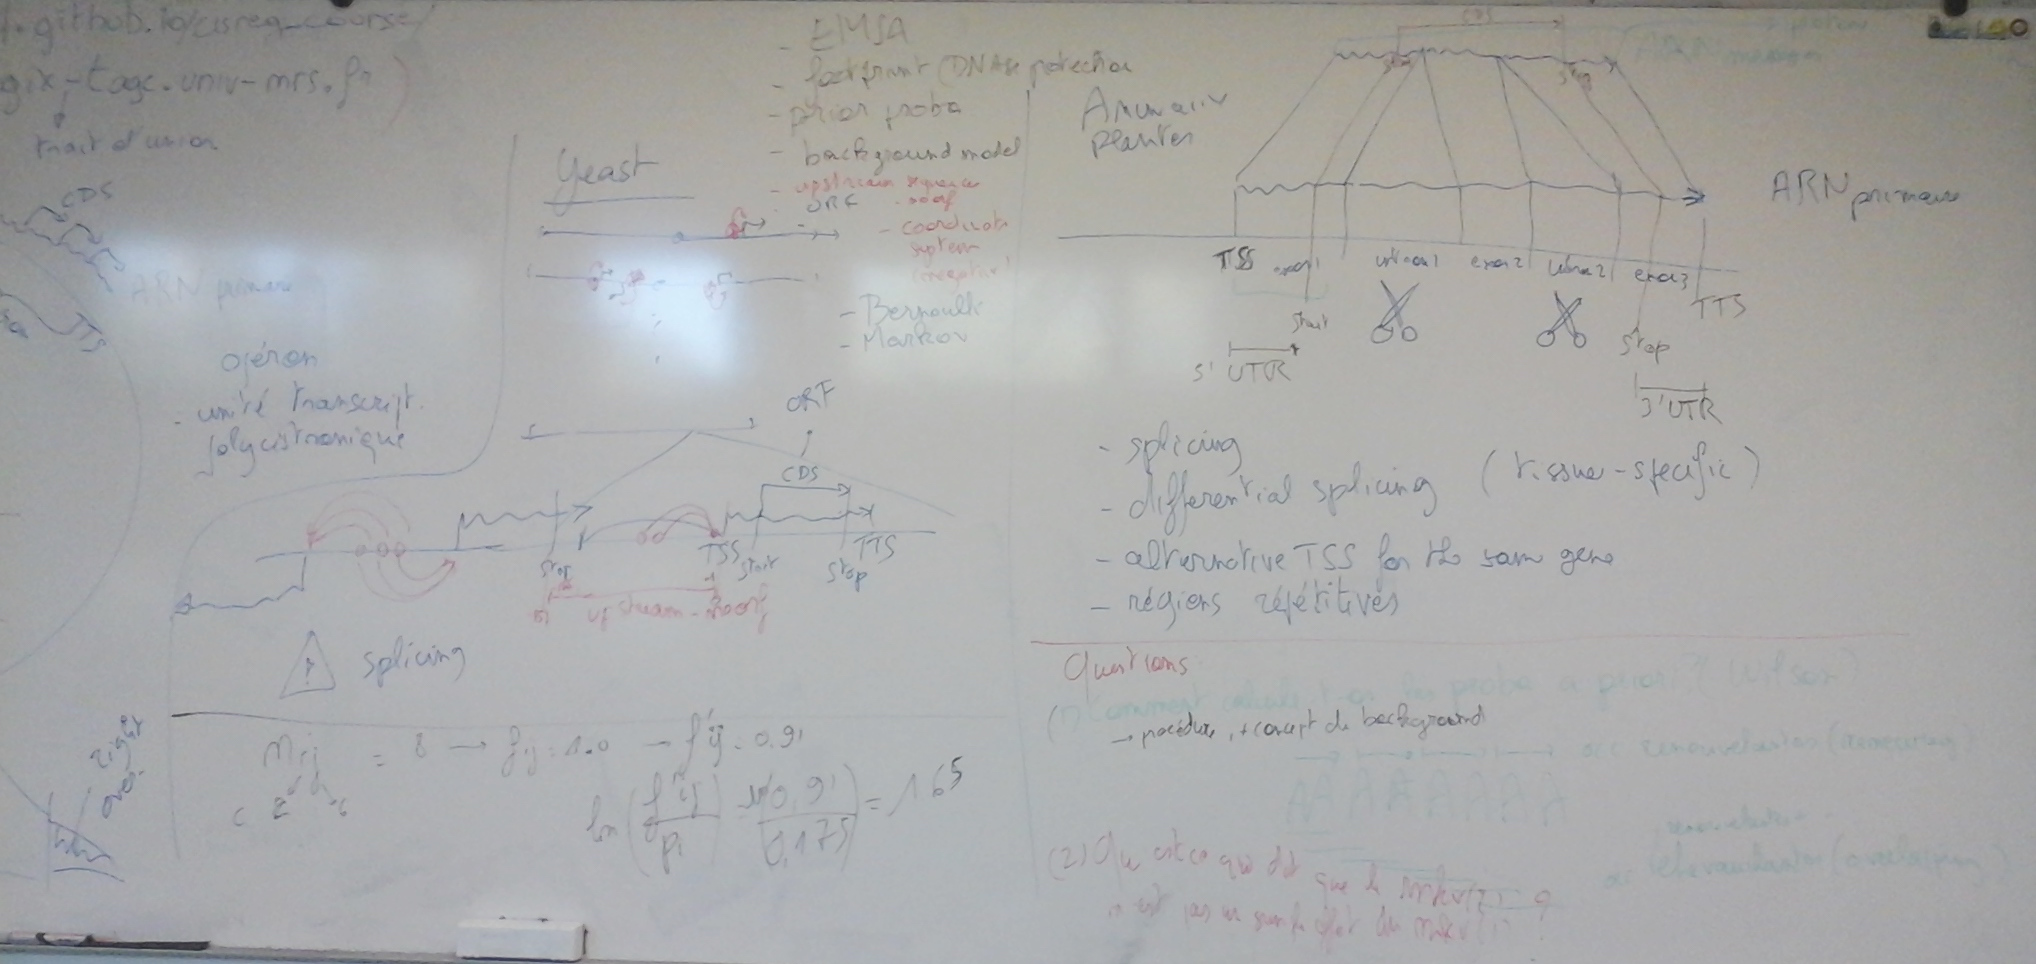 .github.io/cisreg_course/
gix-tagc.univ-mrs.fr)
trait d'union
CDS
ARN primaire
TTS
opéron
- unité transcript.
polycistronique
- EMSA
- footprint (DNAse protection
- prior proba
- background model
- upstream sequences
- ORF - noorf
- coordinate
system
(negative)
- Bernoulli
- Markov
Yeast
ORF
CDS
Stop
TSS
Start
Stop
TTS
upstream-noorf
! splicing
nij = 8 → fij = 1.0 → f'ij = 0.91
C 2 6
ln(f'ij / pi) = ln(0,91 / 0,175) = 1.65
CDS
Start
Stop
ARN
Animaux
plantes
ARN primaire
TSS exon1 intron1 exon2 intron2 exon3 TTS
Start
Stop
5' UTR
3' UTR
- splicing
- differential splicing (tissue-specific)
- alternative TSS for the same gene
- régions répétitives
Questions
(1) Comment calcule-t-on les proba a priori?
→ procédure, + concept de background
occ renouvelantes
AAAAAAAA
occ chevauchantes (overlapping)
(2) Qu'est ce qui dit que le
n'est pas un simple effet du